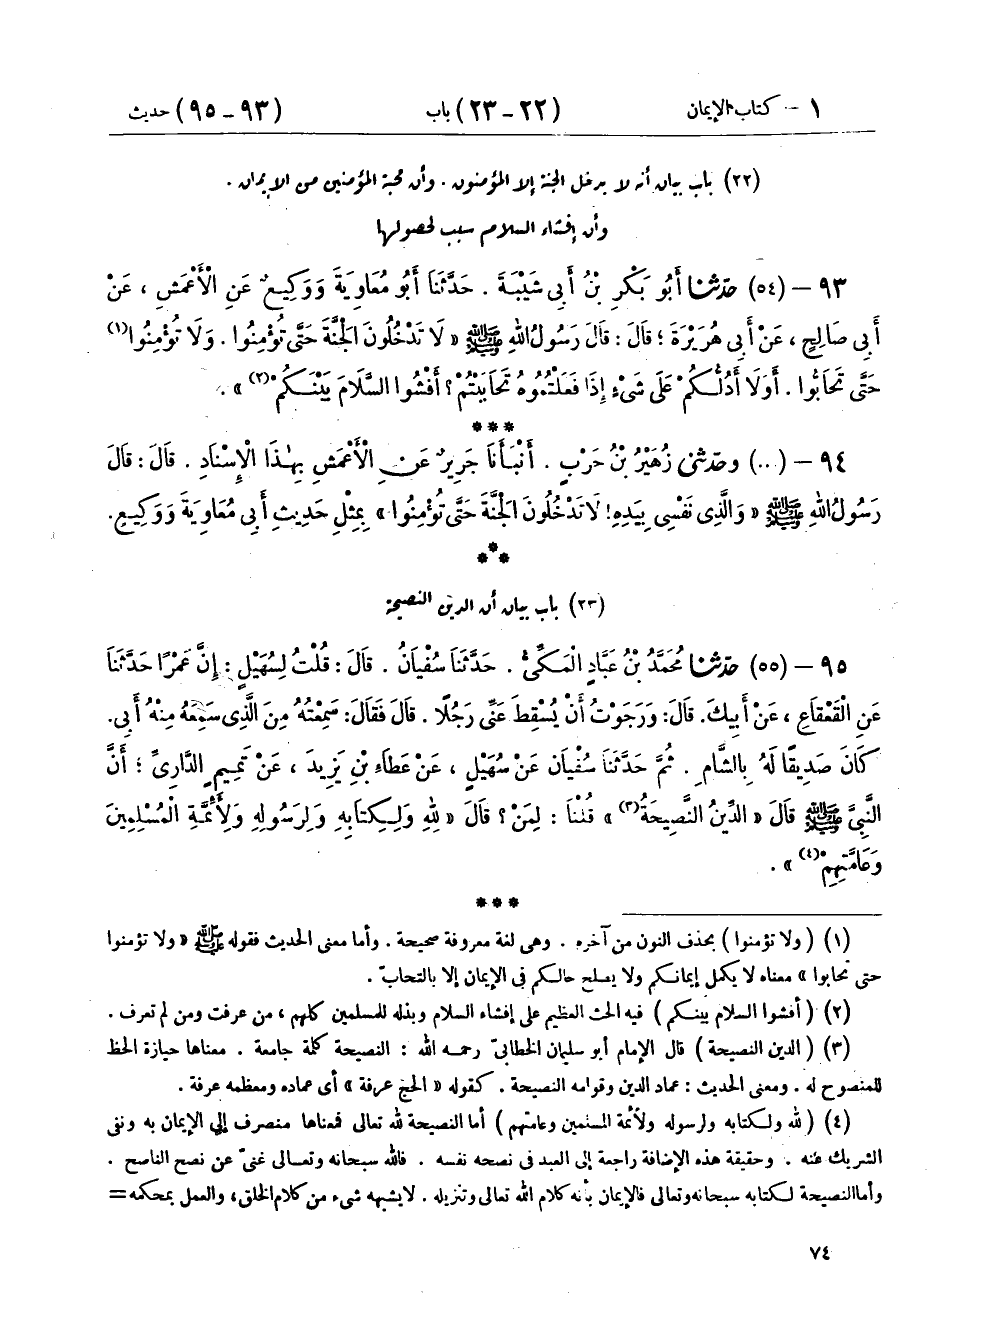 ١ – كتاب الإيمان (٢٢ – ٢٣) باب (٩٣ – ٩٥) حديث
(٢٢) باب بيان أنه لا يدخل الجنة إلا المؤمنون . وأن محبة المؤمنين من الإيمان .
وأن إفشاء السلام سبب لحصولها
٩٣ – (٥٤) حدّثنا أَبُو بَكْرِ بْنُ أَبِي شَيْبَةَ . حَدَّثَنَا أَبُو مُعَاوِيَةَ وَوَكِيعٌ عَنِ الْأَعْمَشِ ، عَنْ
أَبِي صَالِحٍ ، عَنْ أَبِي هُرَيْرَةَ ؛ قَالَ : قَالَ رَسُولُ اللهِ ﷺ « لَا تَدْخُلُونَ الْجَنَّةَ حَتَّى تُؤْمِنُوا . وَلَا تُؤْمِنُوا(١)
حَتَّى تَحَابُّوا . أَوَلَا أَدُلُّكُمْ عَلَى شَيْءٍ إِذَا فَعَلْتُمُوهُ تَحَابَبْتُمْ ؟ أَفْشُوا السَّلَامَ بَيْنَكُمْ(٢) » .
***
٩٤ – (...) وحدّثني زُهَيْرُ بْنُ حَرْبٍ . أَنْبَأَنَا جَرِيرٌ عَنِ الْأَعْمَشِ بِهٰذَا الْإِسْنَادِ . قَالَ : قَالَ
رَسُولُ اللهِ ﷺ « وَالَّذِي نَفْسِي بِيَدِهِ ! لَا تَدْخُلُونَ الْجَنَّةَ حَتَّى تُؤْمِنُوا » بِمِثْلِ حَدِيثِ أَبِي مُعَاوِيَةَ وَوَكِيعٍ.
***
(٢٣) باب بيان أن الدين النصيحة
٩٥ – (٥٥) حدّثنا مُحَمَّدُ بْنُ عَبَّادٍ الْمَكِّيُّ . حَدَّثَنَا سُفْيَانُ . قَالَ : قُلْتُ لِسُهَيْلٍ : إِنَّ عَمْرًا حَدَّثَنَا
عَنِ الْقَعْقَاعِ ، عَنْ أَبِيكَ. قَالَ: وَرَجَوْتُ أَنْ يُسْقِطَ عَنِّي رَجُلًا . قَالَ فَقَالَ: سَمِعْتُهُ مِنَ الَّذِي سَمِعَهُ مِنْهُ أَبِي.
كَانَ صَدِيقًا لَهُ بِالشَّامِ . ثُمَّ حَدَّثَنَا سُفْيَانُ عَنْ سُهَيْلٍ ، عَنْ عَطَاءِ بْنِ يَزِيدَ ، عَنْ تَمِيمٍ الدَّارِيِّ ؛ أَنَّ
النَّبِيَّ ﷺ قَالَ « الدِّينُ النَّصِيحَةُ(٣) » قُلْنَا : لِمَنْ ؟ قَالَ « لِلهِ وَلِكِتَابِهِ وَلِرَسُولِهِ وَلِأَئِمَّةِ الْمُسْلِمِينَ
وَعَامَّتِهِمْ(٤) » .
***
(١) ( ولا تؤمنوا ) بحذف النون من آخره . وهى لغة معروفة صحيحة . وأما معنى الحديث فقوله ﷺ « ولا تؤمنوا
حتى تحابوا » معناه لا يكمل إيمانكم ولا يصلح حالكم فى الإيمان إلا بالتحابّ .
(٢) ( أفشوا السلام بينكم ) فيه الحث العظيم على إفشاء السلام وبذله للمسلمين كلهم ، من عرفت ومن لم تعرف .
(٣) ( الدين النصيحة ) قال الإمام أبو سليمان الخطابىّ رحمه الله : النصيحة كلمة جامعة . معناها حيازة الحظ
للمنصوح له . ومعنى الحديث : عماد الدين وقوامه النصيحة . كقوله « الحج عرفة » أى عماده ومعظمه عرفة .
(٤) ( لله ولكتابه ولرسوله ولأئمة المسلمين وعامتهم ) أما النصيحة لله تعالى فمعناها منصرف إلى الإيمان به ونفى
الشريك عنه . وحقيقة هذه الإضافة راجعة إلى العبد فى نصحه نفسه . فالله سبحانه وتعالى غنىّ عن نصح الناصح .
وأما النصيحة لكتابه سبحانه وتعالى فالإيمان بأنه كلام الله تعالى وتنزيله . لا يشبهه شىء من كلام الخلق، والعمل بمحكمه =
٧٤